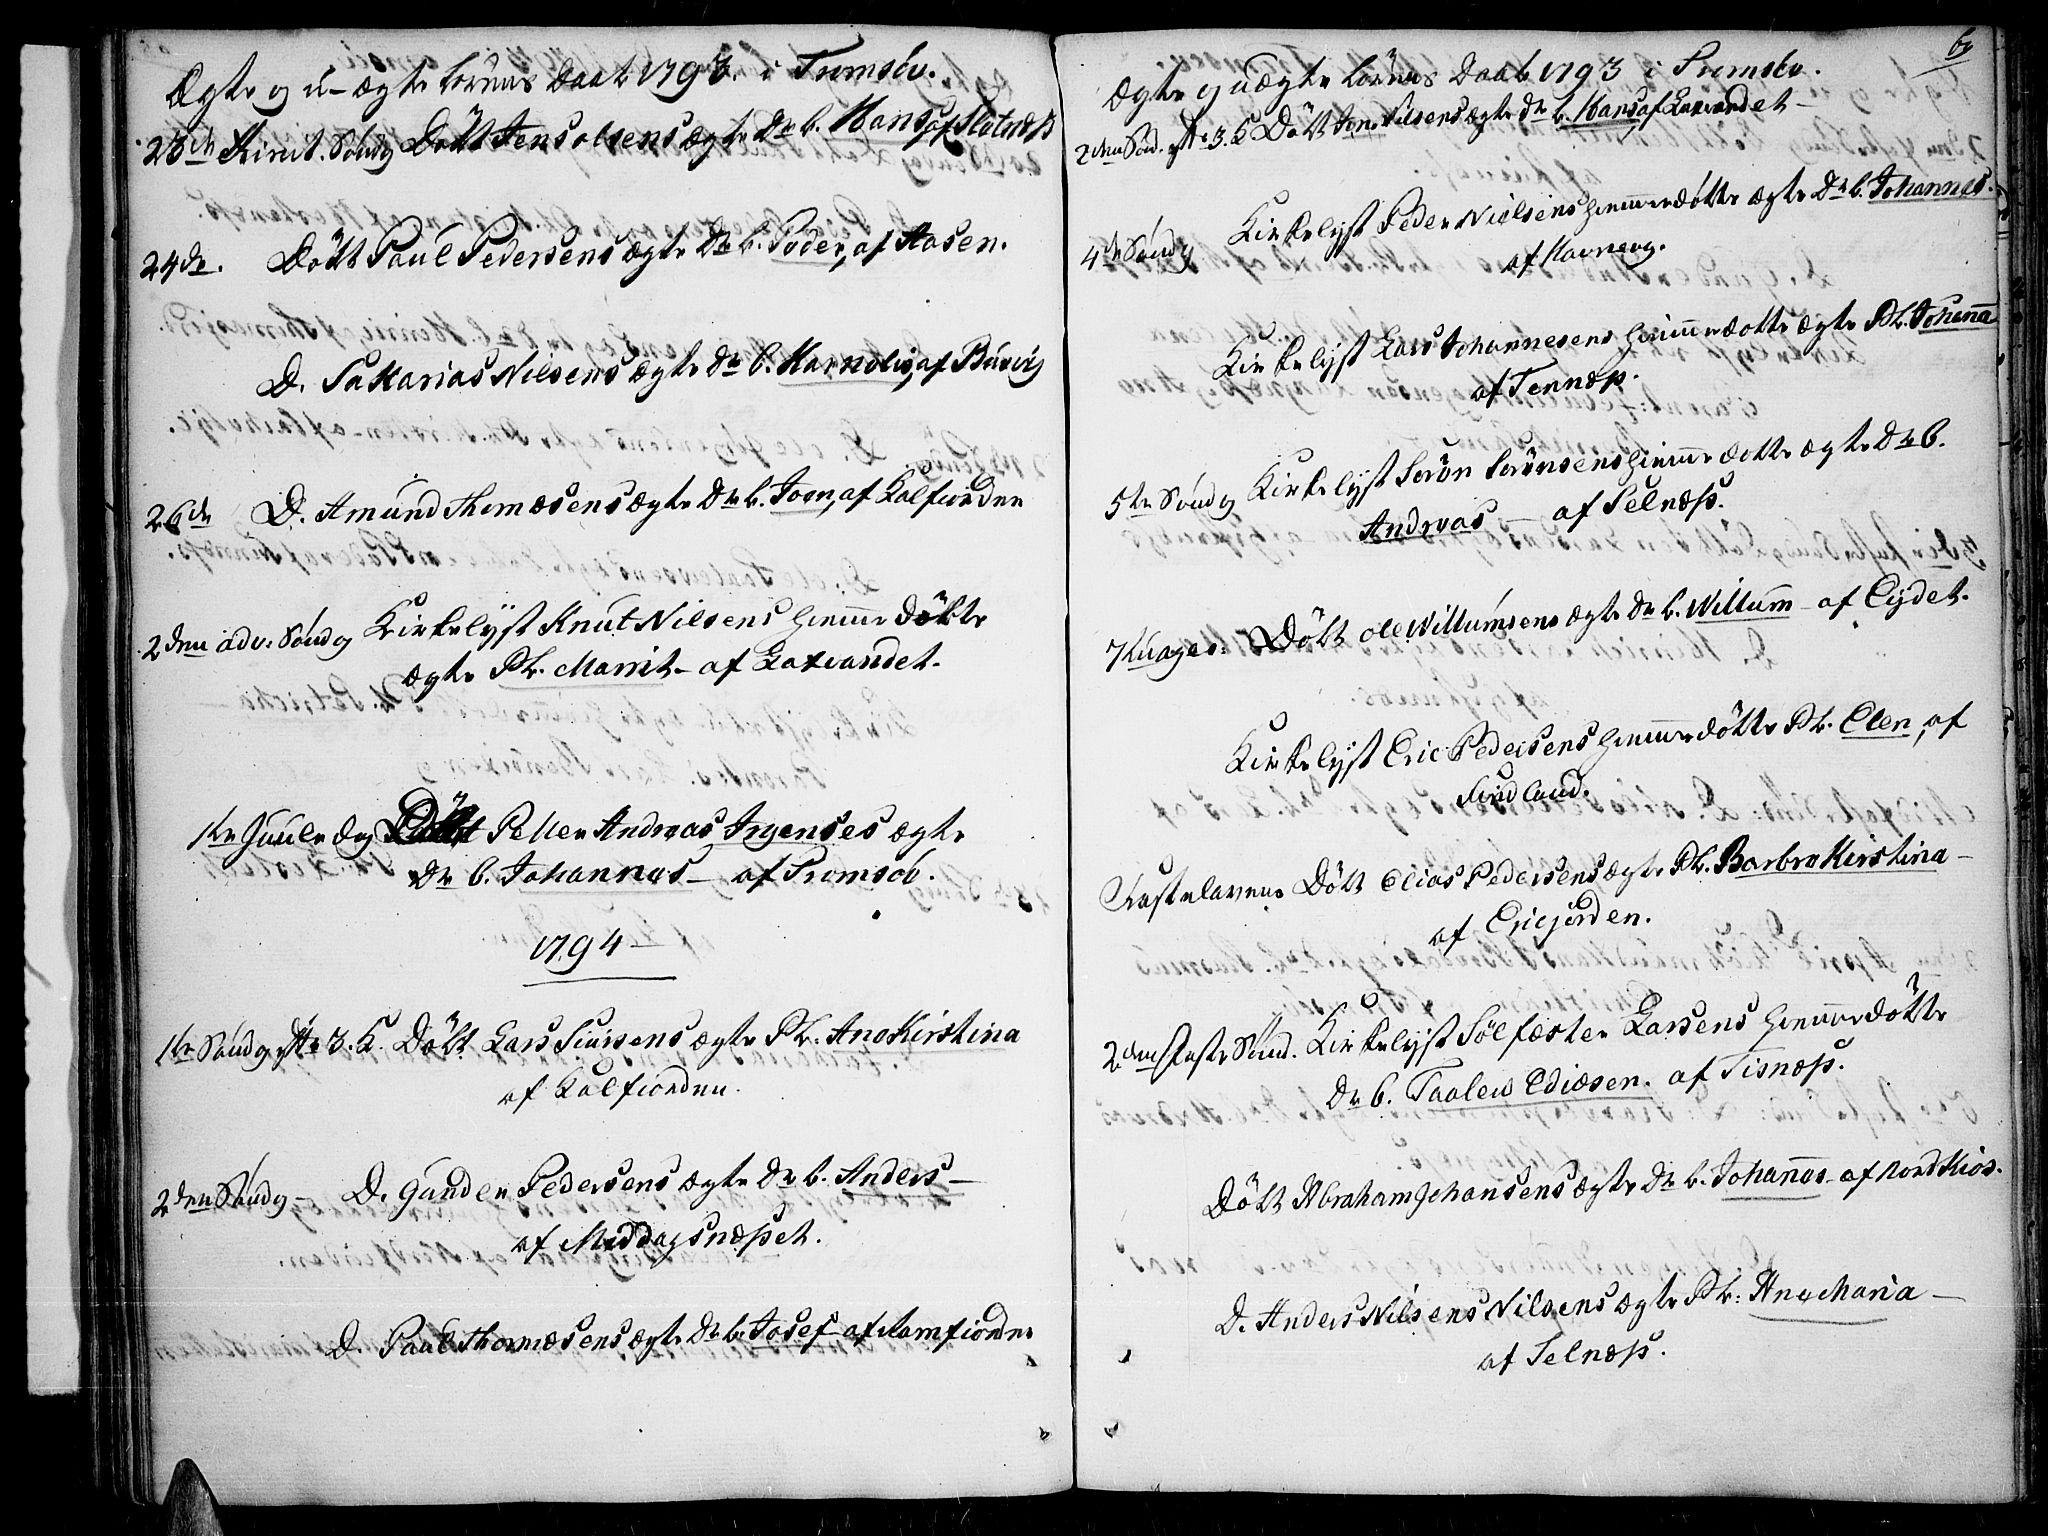 Ægte og u-ægte børnes Daab 1793. i Tromsöe.
23de Trinit. Söndg Döbt Jens olsens ægte Dr. b. Hans, af Slotnæs
24de. Döbt Paul Pedersens ægte Dr. b. Peder, af Aasen.
D. Sakarias Nilsens ægte Dr. b. Karnelis, af Búvig
26de D. Amúnd Thomæsens ægte Dr. b. Joen, af Kalfiorden
2den adv. Söndg Kirkelyst Knut Nilsens hiemme Döbte
ægte Pb. Marrit – af Laxvandet.
1te Juule dag Döbt Peller Andreas Irgenses ægte
Dr. b. Johannes – af Tromsöe.
1794
1te Söndg eft. 3. K. Döbt Lars Siursens ægte Pb. Ano Kirstina
af Kalfiorden.
2den Söndg – D. Gunder Pedersens ægte Dr. b. Anders –
af Meddagsnæset.
D. Paul Thomæsens ægte Dr. b. Josef – af Ramfiorden
Ægte og uægte børnes Daab 1793 i Tromsöe.
2den Sönd. eft. 3. K Döbt Jens Nilsens ægte Dr. b. Hans, af Laxvandet –
4de Söndg Kirkelyst Peder Nielsens hiemmedöbte ægte Dr. b. Johannes.
af Kavnevg.
Kirkelyst Lars Johannesens hiemmedobte ægte Pb. Johanna
af Tennæs.
5te Söndg Kirkelyst Sörön Sörönsens hiemme dobte ægte Dr. b.
Andreas – af Selnæs.
7Kuages: Döbt Ole Willumsens ægte Dr. b. Willum – af Eydet.
Kirkelyst Eric Pedersens hiemmedöbte Pb. Elen, af
Findland.
Fastelavens Döbt Elias Pedersens ægte Pb. Barbra Kirstina –
af Ericjorden.
2den Faste Sönd. Kirkelyst Sölfæster Larsens hiemmedöbte
Dr. b. Taalew Ediæsen. af Tisnæs.
Döbt Abraham Johansens ægte Dr. b. Johanes – af Nord Kios.
D. Anders Nilsens Nilsens ægte Pb: Ane Maria –
af Selnæs.